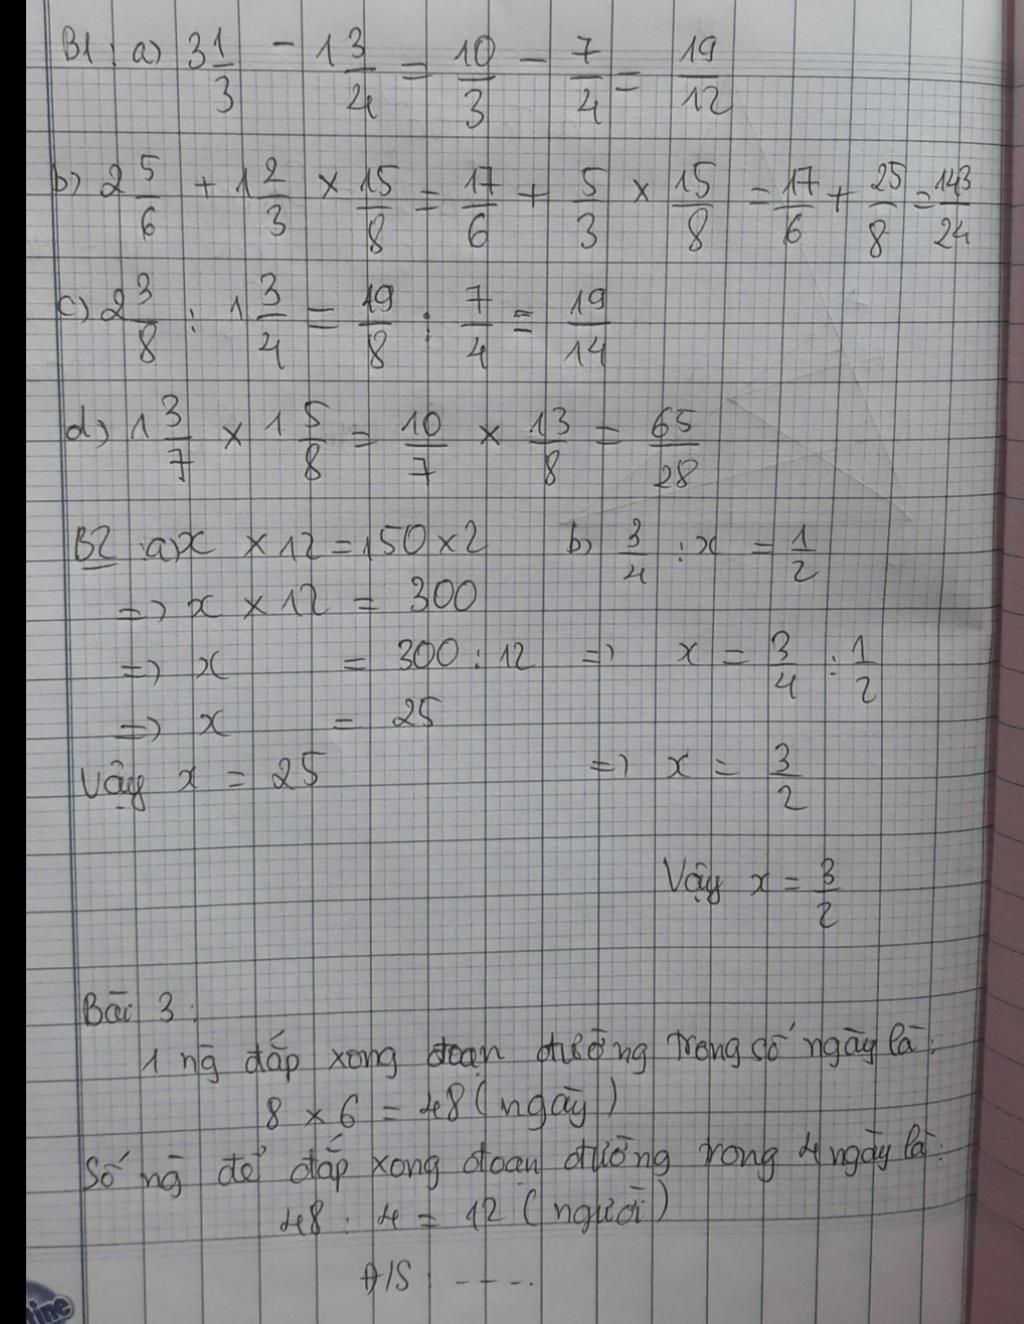 B1: a) 3 1/3 - 1 3/4 = 10/3 - 7/4 = 19/12
b) 2 5/6 + 1 2/3 × 15/8 = 17/6 + 5/3 × 15/8 = 17/6 + 25/8 = 143/24
c) 2 3/8 : 1 3/4 = 19/8 : 7/4 = 19/14
d) 1 3/7 × 1 5/8 = 10/7 × 13/8 = 65/28
B2 a) x × 12 = 150 × 2 b) 3/4 : x = 1/2
=> x × 12 = 300
=> x = 300 : 12 => x = 3/4 : 1/2
=> x = 25
Vậy x = 25 => x = 3/2
Vậy x = 3/2
Bài 3:
1 ng̃ đắp xong đoạn đường trong số ngày là:
8 × 6 = 48 (ngày)
Số ng̃ để đắp xong đoạn đường trong 4 ngày là:
48 : 4 = 12 (người)
Đ/S: ----.
ine